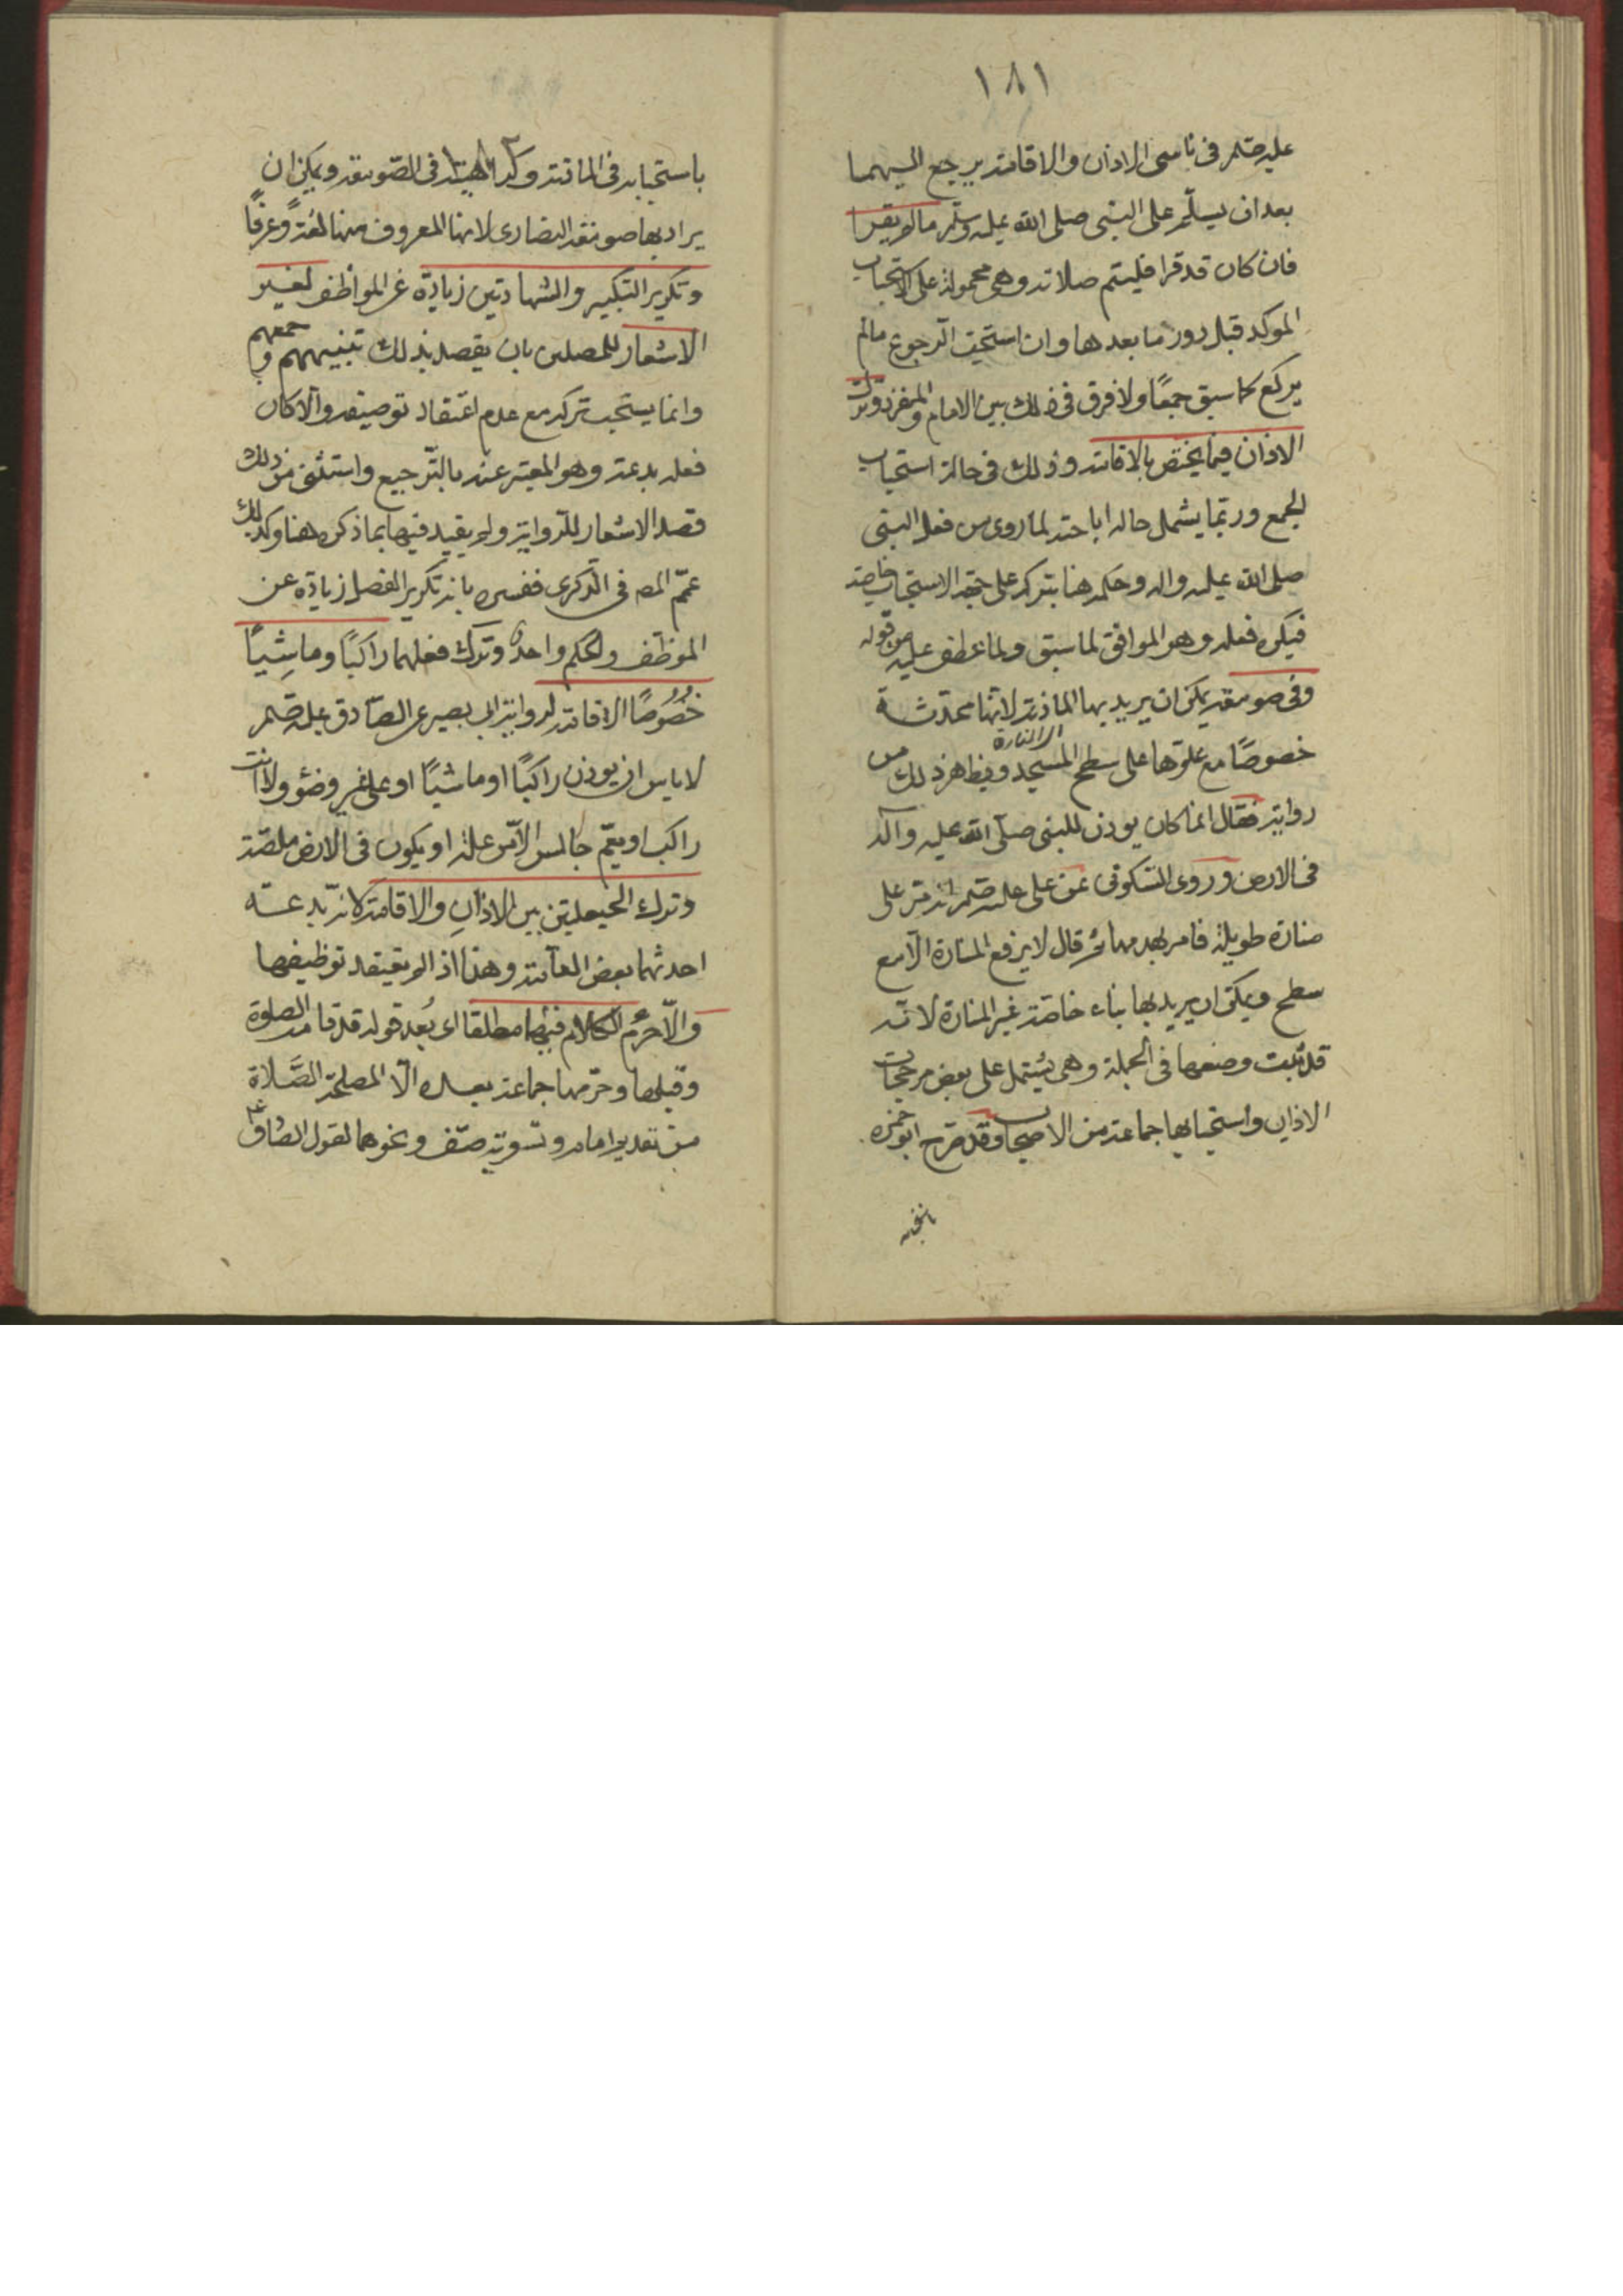 ١٨١
عليه السلم في ناسي الاذان والاقامة يرجع اليهما
بعد ان يسلّم على النبي صلى الله عليه وسلّم ما لم يقرا
فان كان قد قرا فليتم صلاته وهي محمولة على الاستحباب
الموكد قبل دون ما بعدها وان استحب الرجوع مالم
يركع كما سبق جمعًا ولا فرق في ذلك بين الامام والمنفرد وترك
الاذان فيما يختص بالاقامة وذلك في حالة استحباب
الجمع وربّما يشمل حالة اباحته لما روى من فعل النبي
صلى الله عليه واله وحكمه هنا بتركه على جهة الاستحباب خاصة
فيكره فعله وهو الموافق لما سبق ولما عطف عليه من قوله
وفي صومعة يمكن ان يريد بها الماذنة لانّها محدثة
خصوصًا مع علوّها على سطح المسجد ويظهر ذلك من
اي المنارة
رواية فقال انما كان يوذن للنبي صلّى الله عليه وآله
في الارض وروى السّكوني عن علي عليه السلم انه مرّ على
منارة طويلة فامر بهدمها ثم قال لا يرفع المنارة الّا مع
سطح ويمكن ان يريد بها بناء خاصّة غير المنارة لانّه
قد ثبت وضعها في الجملة وهي يشتمل على بعض مرجحات
الاذان واستحبابها جماعة من الاصحاب وقد صرّح ابو حمزه

١٨٢
باستحبابه في الماذنة وكراهيته في الصّومعة ويمكن ان
يراد بها صومعة النصارى لانها المعروف منها لغةً وعرفًا
وتكرير التكبير والشهادتين زيادة عن الموظف لغير
الاشعار للمصلين بان يقصد بذلك تنبيههم وجمعهم
وانما يستحب تركه مع عدم اعتقاد توصيفه والّا كان
فعله بدعة وهو المعبّر عنه بالتّرجيع واستثنى من ذلك
قصد الاشعار للرّواية ولم يقيد فيها بما ذكر هنا وكذلك
عمّم المصـ في الذكرى ففسره بانه تكرير الفصل زيادة عن
الموظّف والحكم واحد وترك فعلهما راكبًا وماشِيًا
خُصُوصًا الاقامة لرواية ابي بصير عن الصّادق عليه السلم
لا باس ان يوذن راكبًا او ماشيًا او على غير وضؤ ولا انت
راكب او يتمّ جالس الّا من علة او يكون في الارض ملصّة
وترك الحيعلتين بين الاذانِ والاقامة لانّه بدعة
احدثها بعض العامّة وهذا اذا لم يعتقد توظيفها
والّا حَرُم الكلام فيهما مطلقا اي بُعد قوله قد قامت الصلوة
وقبلها وحرّمها جماعة بعده الّا لمصلحة الصَّلاة
من تقديم امام وتسوية صفّ ونحوهما لقول الصادق